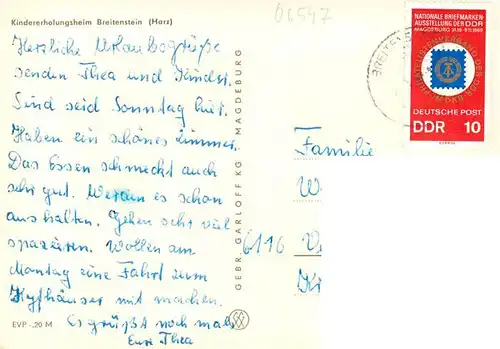 Kindererholungsheim Breitenstein (Harz)
06547
Herzliche Urlaubsgrüße
senden Thea und Kindst.
Sind seid Sonntag hier.
Haben ein schönes Zimmer.
Das Essen schmeckt auch
sehr gut. Werden es schon
aushalten. Gehen sehr viel
spazieren. Wollen am
Montag eine Fahrt zum
Kyffhäuser mit machen.
Es grüßt noch mal
Eure Thea
EVP -,20 M
GEBR. GARLOFF KG MAGDEBURG
NATIONALE BRIEFMARKEN-
AUSSTELLUNG DER DDR
MAGDEBURG 31.10.-9.11.1969
PHILATELISTENVERBAND DER DDR
IM DKB
DEUTSCHE POST
DDR 10
Familie
W
6116